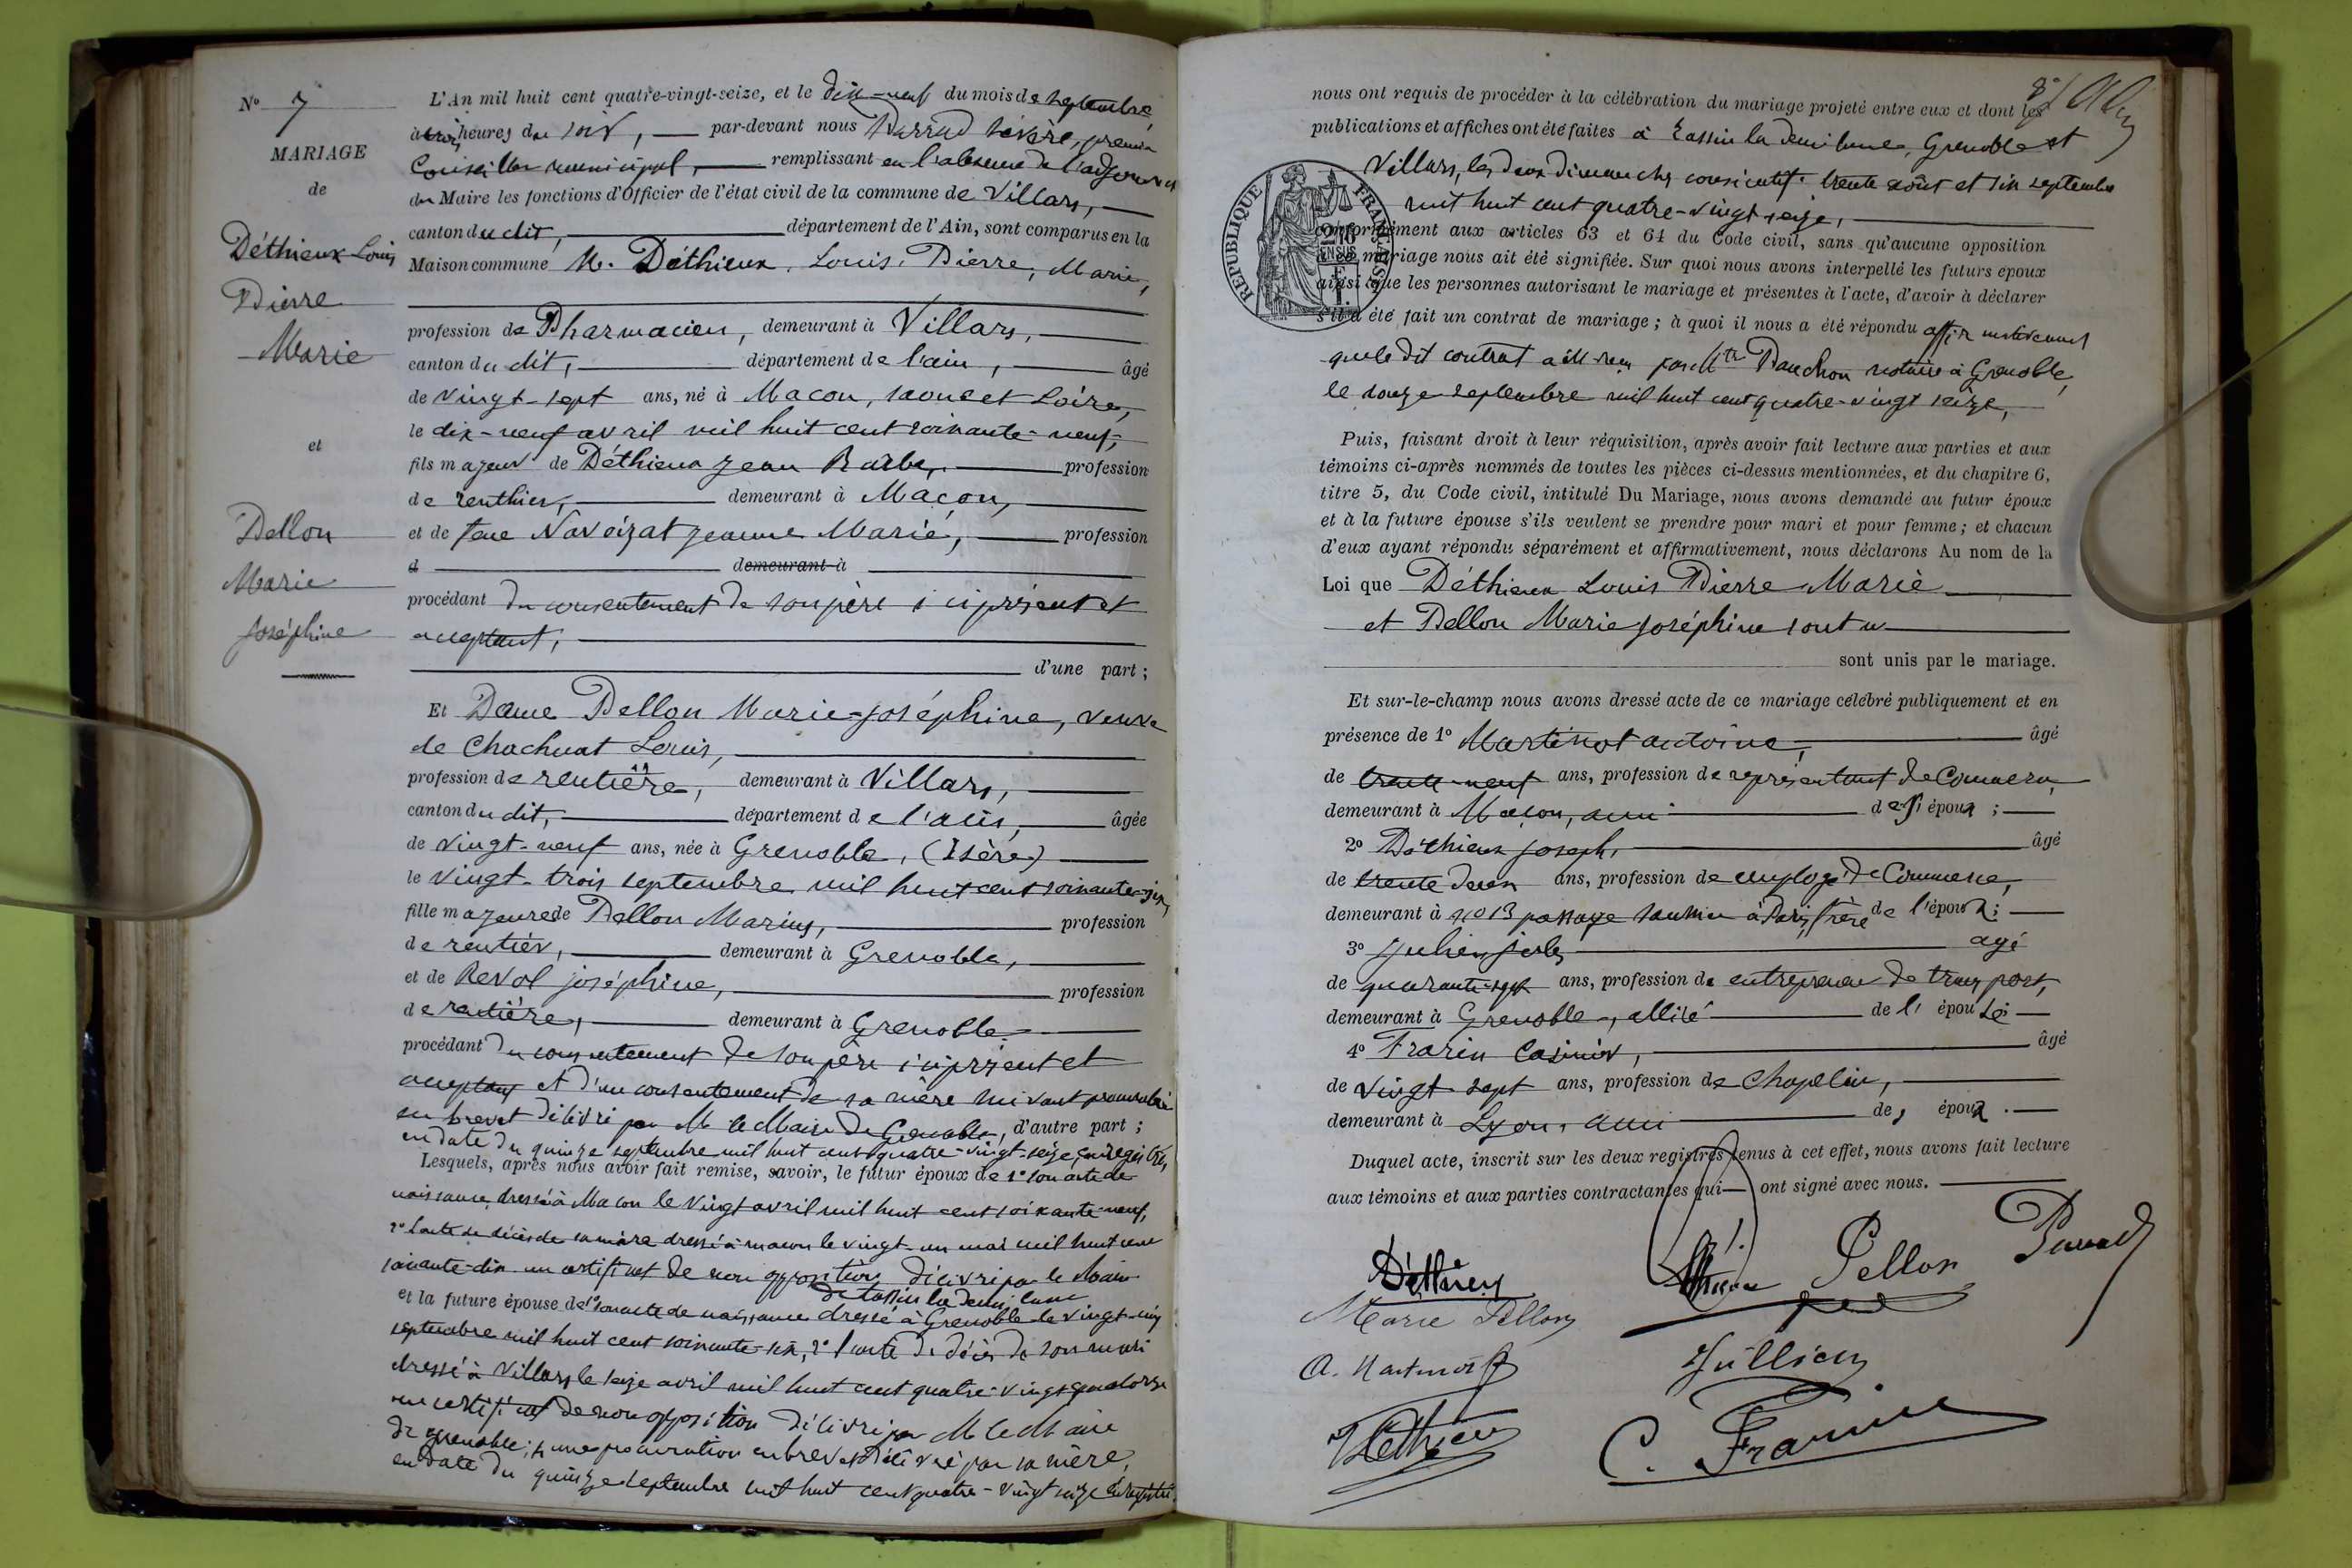 N° 7
MARIAGE
de
Déthieux Louis
Pierre
Marie
et
Pellon
Marie
Joséphine
L'An mil huit cent quatre-vingt-seize, et le dix-neuf du mois de septembre,
à trois heures du soir, par-devant nous Sévère, premier
Conseiller municipal, remplissant en l'absence de l'adjoint et
du Maire les fonctions d'Officier de l'état civil de la commune de Villars,
canton du dit, département de l'Ain, sont comparus en la
Maison commune M. Déthieux, Louis, Pierre, Marie,
profession de Pharmacien, demeurant à Villars,
canton du dit, département de l'ain, âgé
de vingt-sept ans, né à Macon, saone et Loire,
le dix-neuf avril mil huit cent soixante-neuf,
fils majeur de Déthieux Jean profession
de renthier, demeurant à Macon,
et de feue Navoizat Jeanne Marie, profession
d demeurant à
procédant du consentement de son père ici présent et
acceptant,
d'une part ;
Et Dame Pellon Marie-Joséphine, veuve
de Chachuat Louis,
profession de rentière, demeurant à Villars,
canton du dit, département de l'ain, âgée
de vingt-neuf ans, née à Grenoble, (Isère)
le vingt-trois septembre mil huit cent soixante-six,
fille majeure de Pellon Marius, profession
de rentier, demeurant à Grenoble,
et de Revol joséphine, profession
de rentière, demeurant à Grenoble
procédant du consentement de son père ici présent et
acceptant et d'un consentement de sa mère suivant procuration
en brevet délivré par M le Maire de Grenoble, d'autre part ;
en date du quinze septembre mil huit cent quatre-vingt-seize enregistrée,
Lesquels, après nous avoir fait remise, savoir, le futur époux de 1° son acte de
naissance, dressé à Macon le vingt avril mil huit cent soixante-neuf,
2° l'acte de décès de sa mère dressé à macon le vingt-un mai mil huit cent
soixante-dix un certificat de non opposition délivré par le Maire
de tassin la demi lune
et la future épouse de 1° son acte de naissance dressé à Grenoble le vingt-cinq
septembre mil huit cent soixante-six, 2° l'acte de décès de son mari
dressé à Villars le seize avril mil huit cent quatre-vingt quatorze
un certificat de non opposition délivré par M le Maire
de grenoble; une procuration en brevet délivré par sa mère,
en date du quinze septembre mil huit cent quatre-vingt seize enregistré
nous ont requis de procéder à la célébration du mariage projeté entre eux et dont les
publications et affiches ont été faites à Tassin la demi lune, Grenoble et
Villars, les deux dimanches consécutifs trente août et six septembre
mil huit cent quatre-vingt seize,
RÉPUBLIQUE FRANÇAISE
conformément aux articles 63 et 64 du Code civil, sans qu'aucune opposition
à ce mariage nous ait été signifiée. Sur quoi nous avons interpellé les futurs époux
ainsi que les personnes autorisant le mariage et présentes à l'acte, d'avoir à déclarer
s'il a été fait un contrat de mariage ; à quoi il nous a été répondu affirmativement
que le dit contrat a été reçu par Mtre Pauchon notaire à Grenoble,
le septembre mil huit cent quatre-vingt seize,
Puis, faisant droit à leur réquisition, après avoir fait lecture aux parties et aux
témoins ci-après nommés de toutes les pièces ci-dessus mentionnées, et du chapitre 6,
titre 5, du Code civil, intitulé Du Mariage, nous avons demandé au futur époux
et à la future épouse s'ils veulent se prendre pour mari et pour femme ; et chacun
d'eux ayant répondu séparément et affirmativement, nous déclarons Au nom de la
Loi que Déthieux Louis Pierre Marie
et Pellon Marie Joséphine sont u
sont unis par le mariage.
Et sur-le-champ nous avons dressé acte de ce mariage célébré publiquement et en
présence de 1° Martinot antoine, âgé
de trente-neuf ans, profession de représentant de Commerce,
demeurant à Macon, ami de l' époux ;
2° Déthieux Joseph, âgé
de trente deux ans, profession de employé de Commerce,
demeurant à n° 13 passage saulnier à Paris, frère de l'époux ;
3° Julien Jules agé
de quarante-sept ans, profession de entrepreneur de transport,
demeurant à Grenoble, allié de l' épouse
4° Frarin Casimir, âgé
de vingt sept ans, profession de Chapelier,
demeurant à Lyon, ami des époux.
Duquel acte, inscrit sur les deux registres tenus à cet effet, nous avons fait lecture
aux témoins et aux parties contractantes qui ont signé avec nous.
Déthieux
Pellon
Marie Pellon
A. Martinot
Jullien
Déthieux
C. Frarin